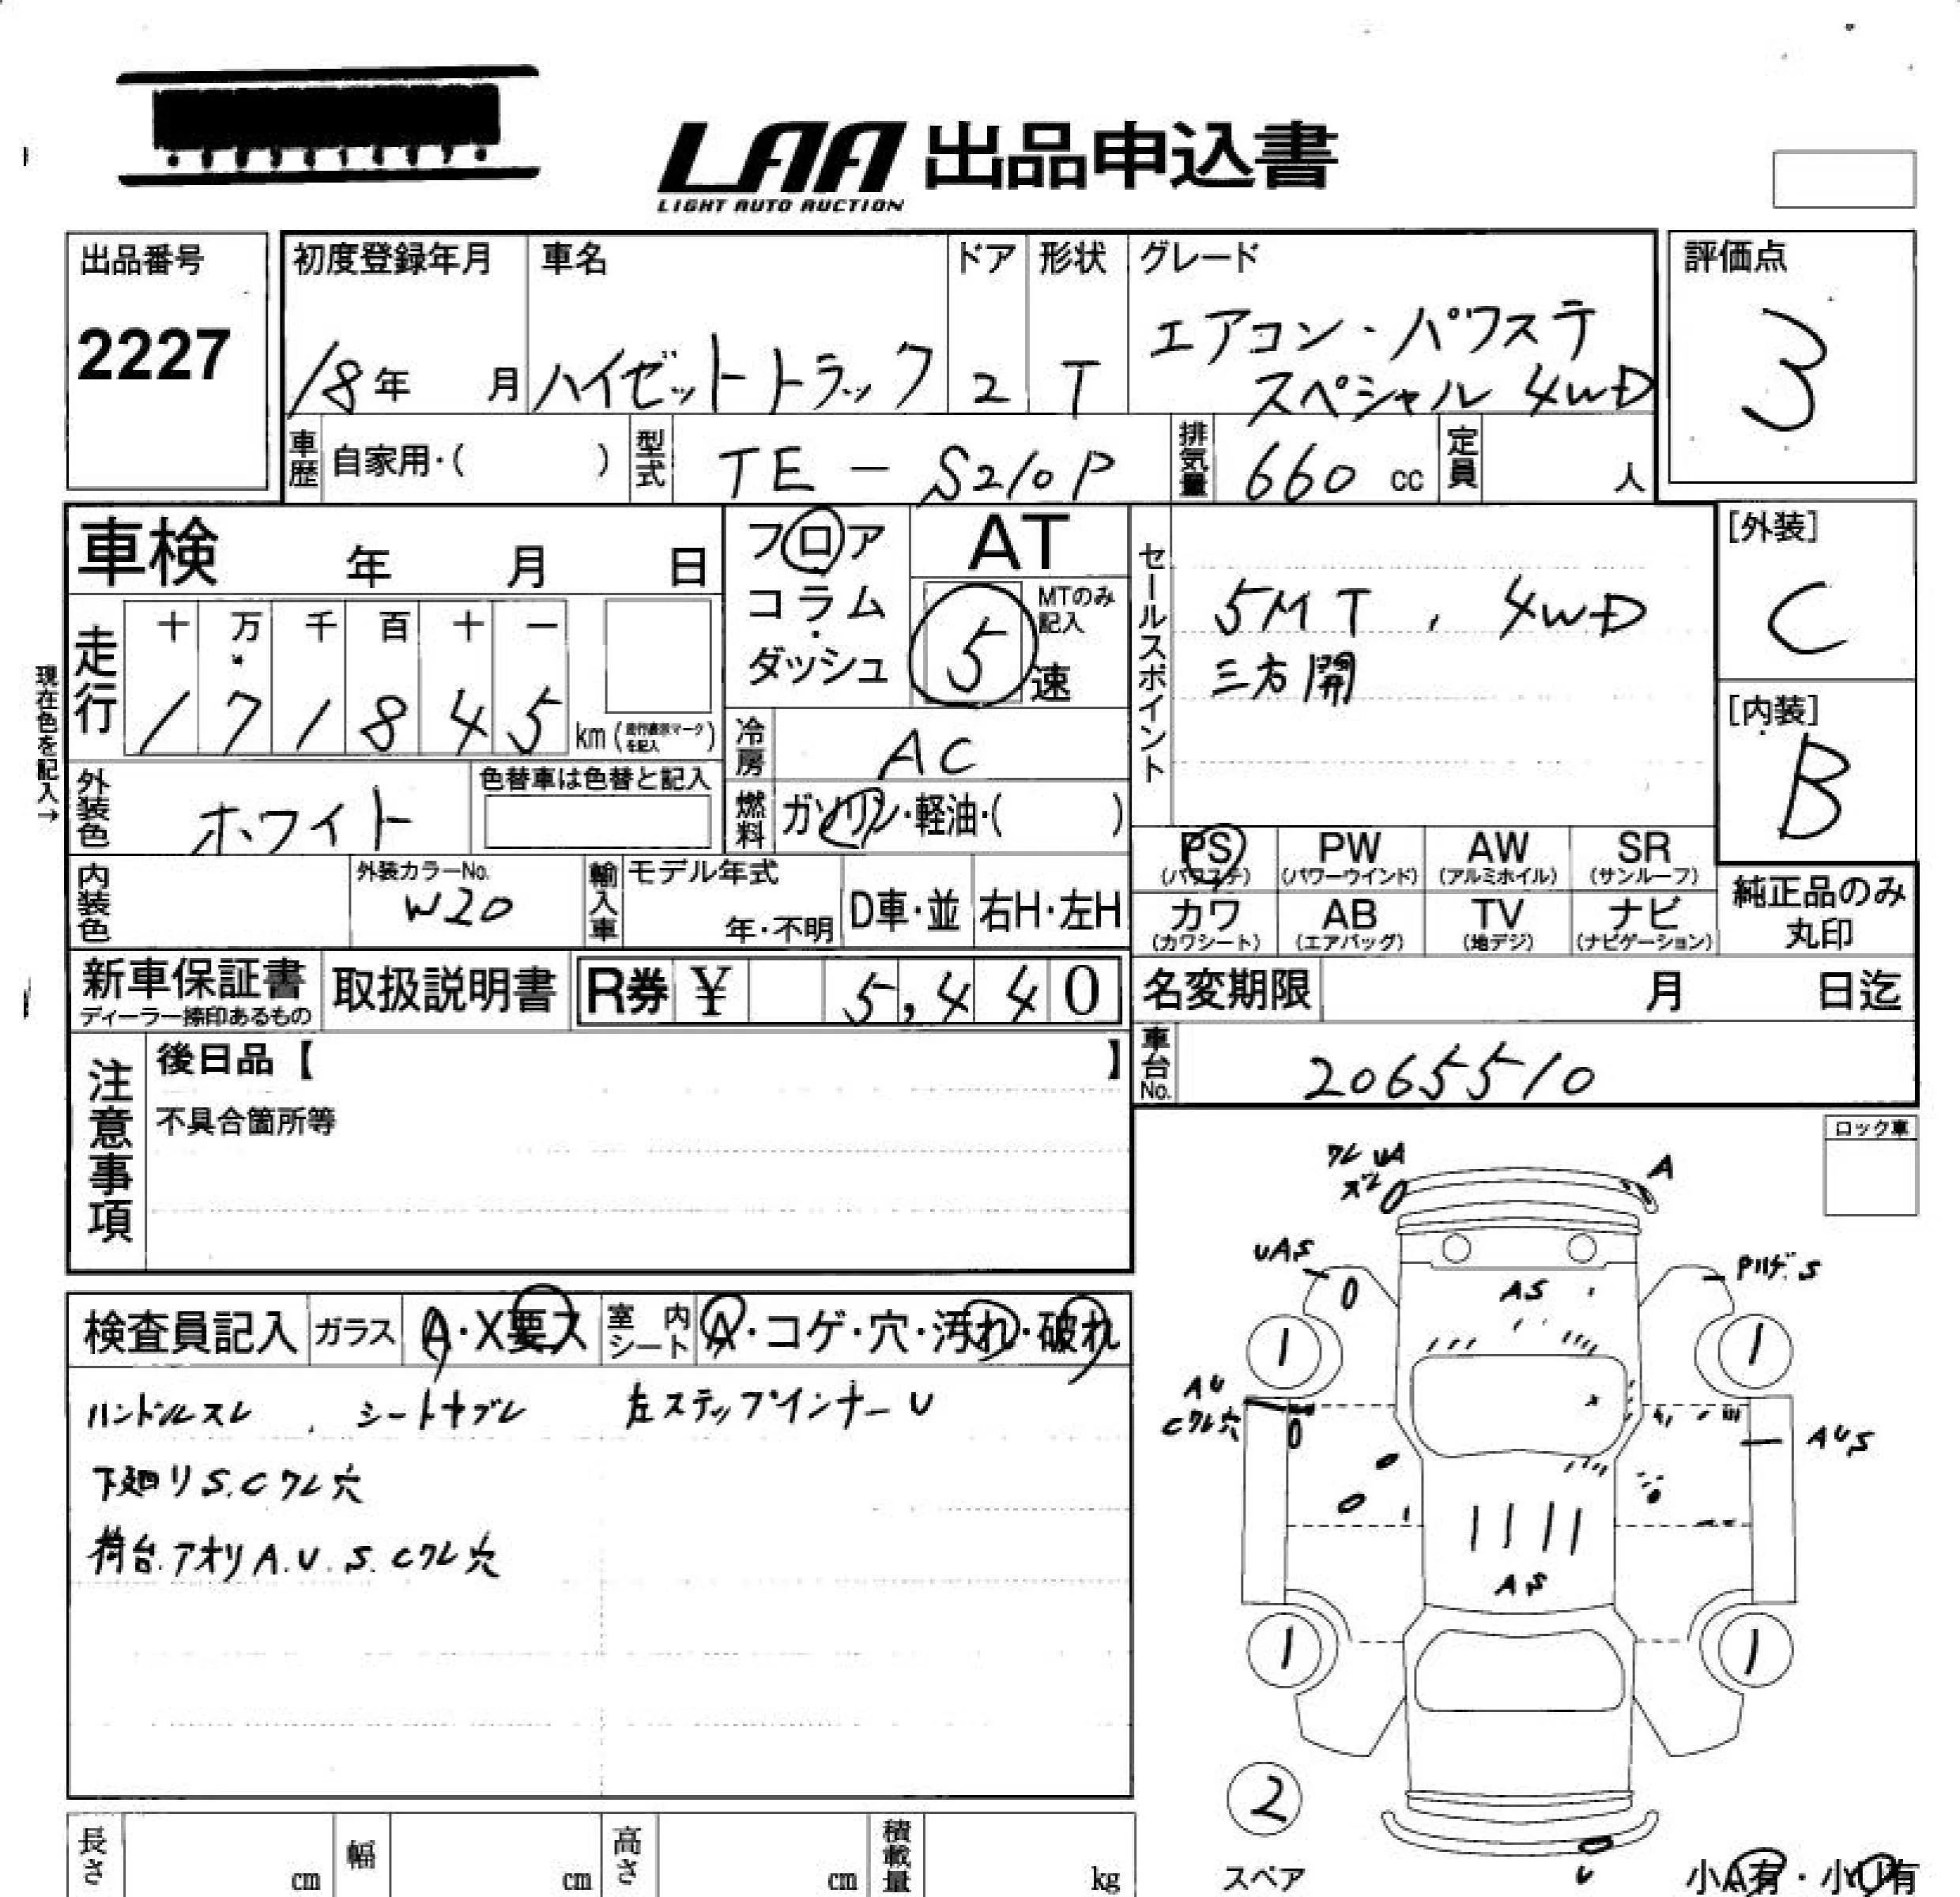 LAA 出品申込書
LIGHT AUTO AUCTION
出品番号
2227
初度登録年月
18年 月
車名
ハイゼットトラック
ドア
2
形状
T
グレード
エアコン・パワステ
スペシャル 4WD
評価点
3
車歴 自家用・( )
型式 TE - S210P
排気量 660 cc
定員 人
車検 年 月 日
フロア
コラム
ダッシュ
AT
5 速
MTのみ
記入
セールスポイント
5MT, 4WD
三方開
[外装]
C
[内装]
B
現在色を記入→
走行
十 万 千 百 十 一
1 7 1 8 4 5 km (走行表示マークを記入)
冷房 AC
外装色 ホワイト
色替車は色替と記入
燃料 ガソリン・軽油・( )
PS (パワステ)
PW (パワーウインド)
AW (アルミホイル)
SR (サンルーフ)
カワ (カワシート)
AB (エアバッグ)
TV (地デジ)
ナビ (ナビゲーション)
純正品のみ
丸印
内装色
外装カラーNo.
W20
輸入車
モデル年式
年・不明
D車・並
右H・左H
新車保証書
ディーラー捺印あるもの
取扱説明書
R券 ¥ 5,440
名変期限 月 日迄
車台No. 2065510
注意事項
後日品【 】
不具合箇所等
ロック車
検査員記入
ガラス A・X要ス
室内シート A・コゲ・穴・汚れ・破れ
ハンドルスレ、シートヤブレ 左ステップインナーU
下廻りS.Cワレ穴
荷台.アオリA.U.S.Cワレ穴
ワレ UA
A
UAS
AS
1
1
AU
Cワレ穴
AUS
AS
1
1
2
スペア
U
小A有・小U有
長さ cm
幅 cm
高さ cm
積載量 kg